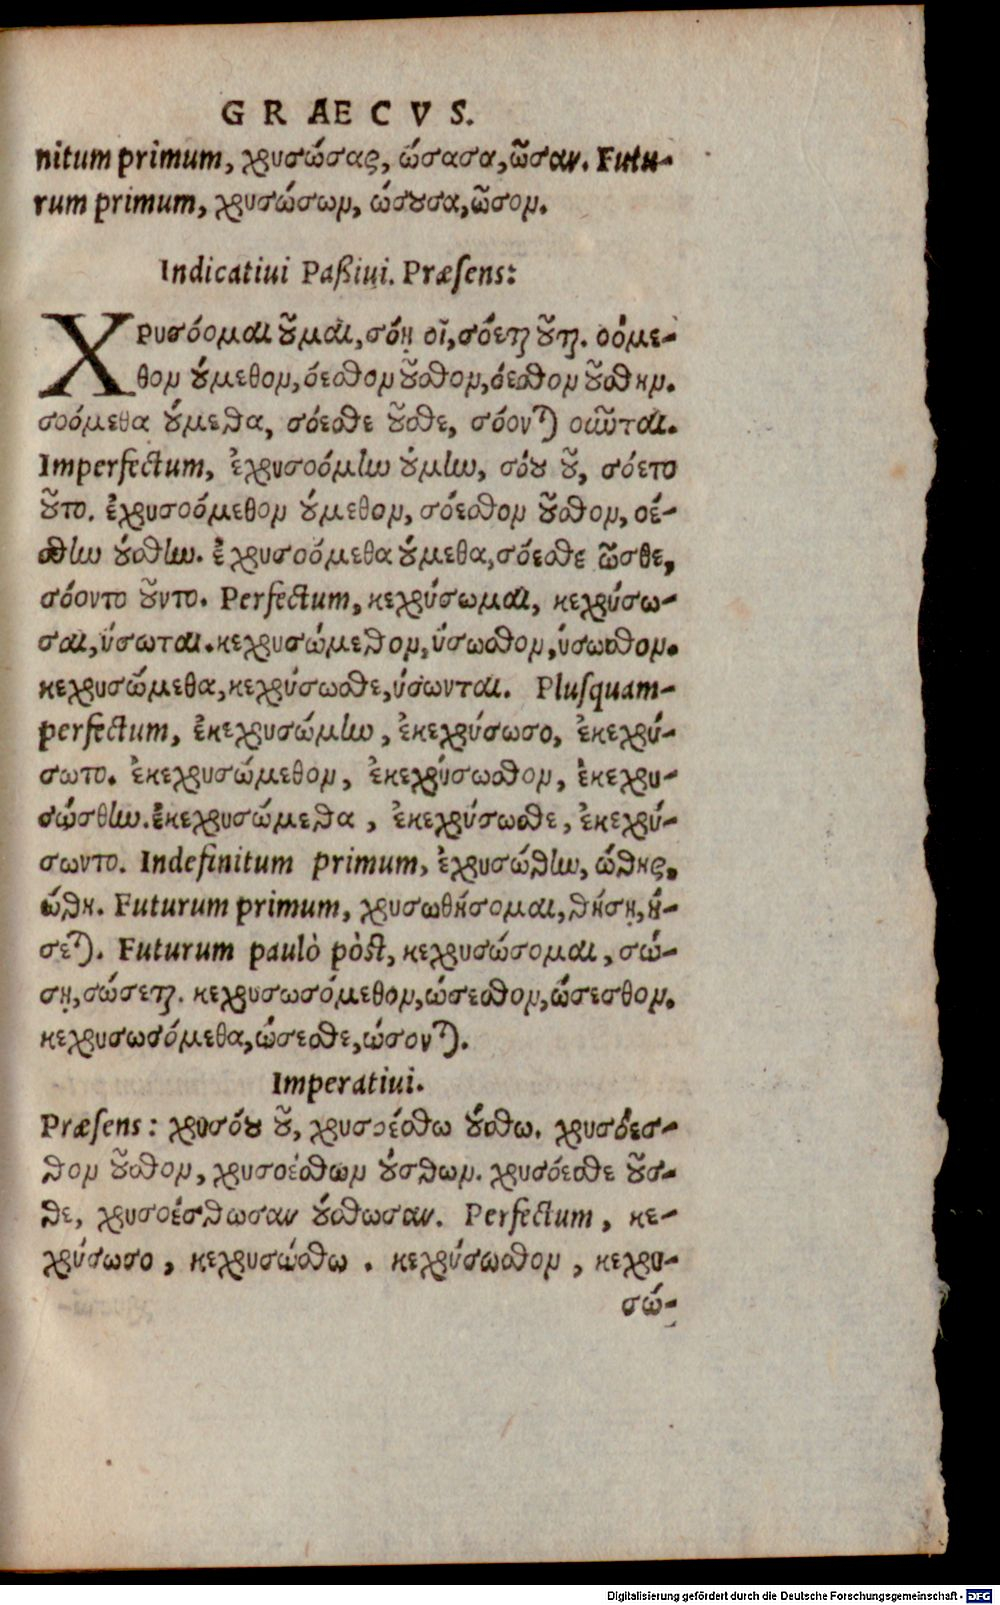 GRAECVS.
nitum primum, χρυσώσας, ώσασα, ῶσαν. Futu-
rum primum, χρυσώσων, ώσουσα, ῶσον.
Indicatiui Paßiui. Præsens:
ΧΡυσόομαι οῦμαι, σόῃ οῖ, σόεται οῦται. οόμε-
θον ούμεθον, όεσθον οῦσθον, όεσθον οῦσθην.
σοόμεθα ούμεθα, σόεσθε οῦσθε, σόονται οιῶνται.
Imperfectum, ἐχρυσοόμην ούμην, σόου οῦ, σόετο
οῦτο. ἐχρυσοόμεθον ούμεθον, σόεσθον οῦσθον, οέ-
σθην ούσθην. ἐχρυσοόμεθα ούμεθα, σόεσθε ῶσθε,
σόοντο οῦντο. Perfectum, κεχρύσωμαι, κεχρύσω-
σαι, ύσωται. κεχρυσώμεθον, ύσωσθον, ύσωσθον.
κεχρυσώμεθα, κεχρύσωσθε, ύσωνται. Plusquam-
perfectum, ἐκεχρυσώμην, ἐκεχρύσωσο, ἐκεχρύ-
σωτο. ἐκεχρυσώμεθον, ἐκεχρύσωσθον, ἐκεχρυ-
σώσθην. ἐκεχρυσώμεθα, ἐκεχρύσωσθε, ἐκεχρύ-
σωντο. Indefinitum primum, ἐχρυσώθην, ώθης,
ώθη. Futurum primum, χρυσωθήσομαι, θήσῃ, ή-
σεται. Futurum paulò pòst, κεχρυσώσομαι, σώ-
σῃ, σώσεται. κεχρυσωσόμεθον, ώσεσθον, ώσεσθον.
κεχρυσωσόμεθα, ώσεσθε, ώσονται.
Imperatiui.
Præsens: χρυσόου οῦ, χρυσοέσθω ούσθω. χρυσόεσ-
θον οῦσθον, χρυσοέσθων ούσθων. χρυσόεσθε οῦσ-
θε, χρυσοέσθωσαν ούσθωσαν. Perfectum, κε-
χρύσωσο, κεχρυσώσθω. κεχρύσωσθον, κεχρυ-
σώ-
Digitalisierung gefördert durch die Deutsche Forschungsgemeinschaft - DFG